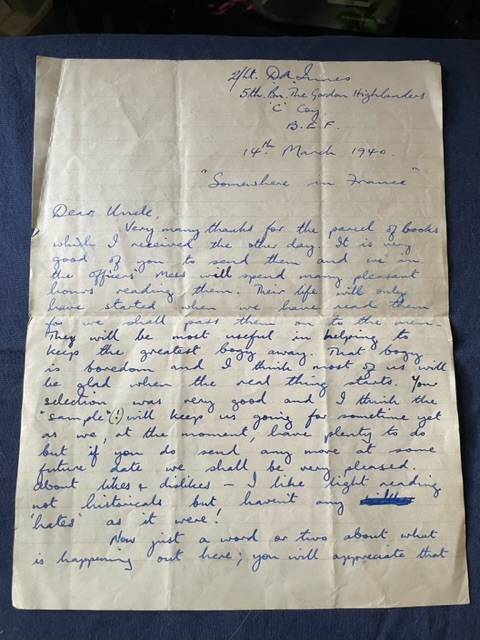 2/Lt. D.A. Innes
5th. Bn. The Gordon Highlanders
"C" Coy
B.E.F.
14th March 1940.
"Somewhere in France"
Dear Uncle,
Very many thanks for the parcel of books
which I received the other day. It is very
good of you to send them and we in
the officers' Mess will spend many pleasant
hours reading them. Their life will only
have started when we have read them
for we shall pass them on to the men.
They will be most useful in helping to
keep the greatest bogy away. That bogy
is boredom and I think most of us will
be glad when the real thing starts. Your
selection was very good and I think the
"sample"(!) will keep us going for sometime yet
as we, at the moment, have plenty to do
but if you do send any more at some
future date we shall be very pleased.
About likes & dislikes – I like light reading
not historicals but haven't any
'hates' as it were!
Now just a word or two about what
is happening out here; you will appreciate that